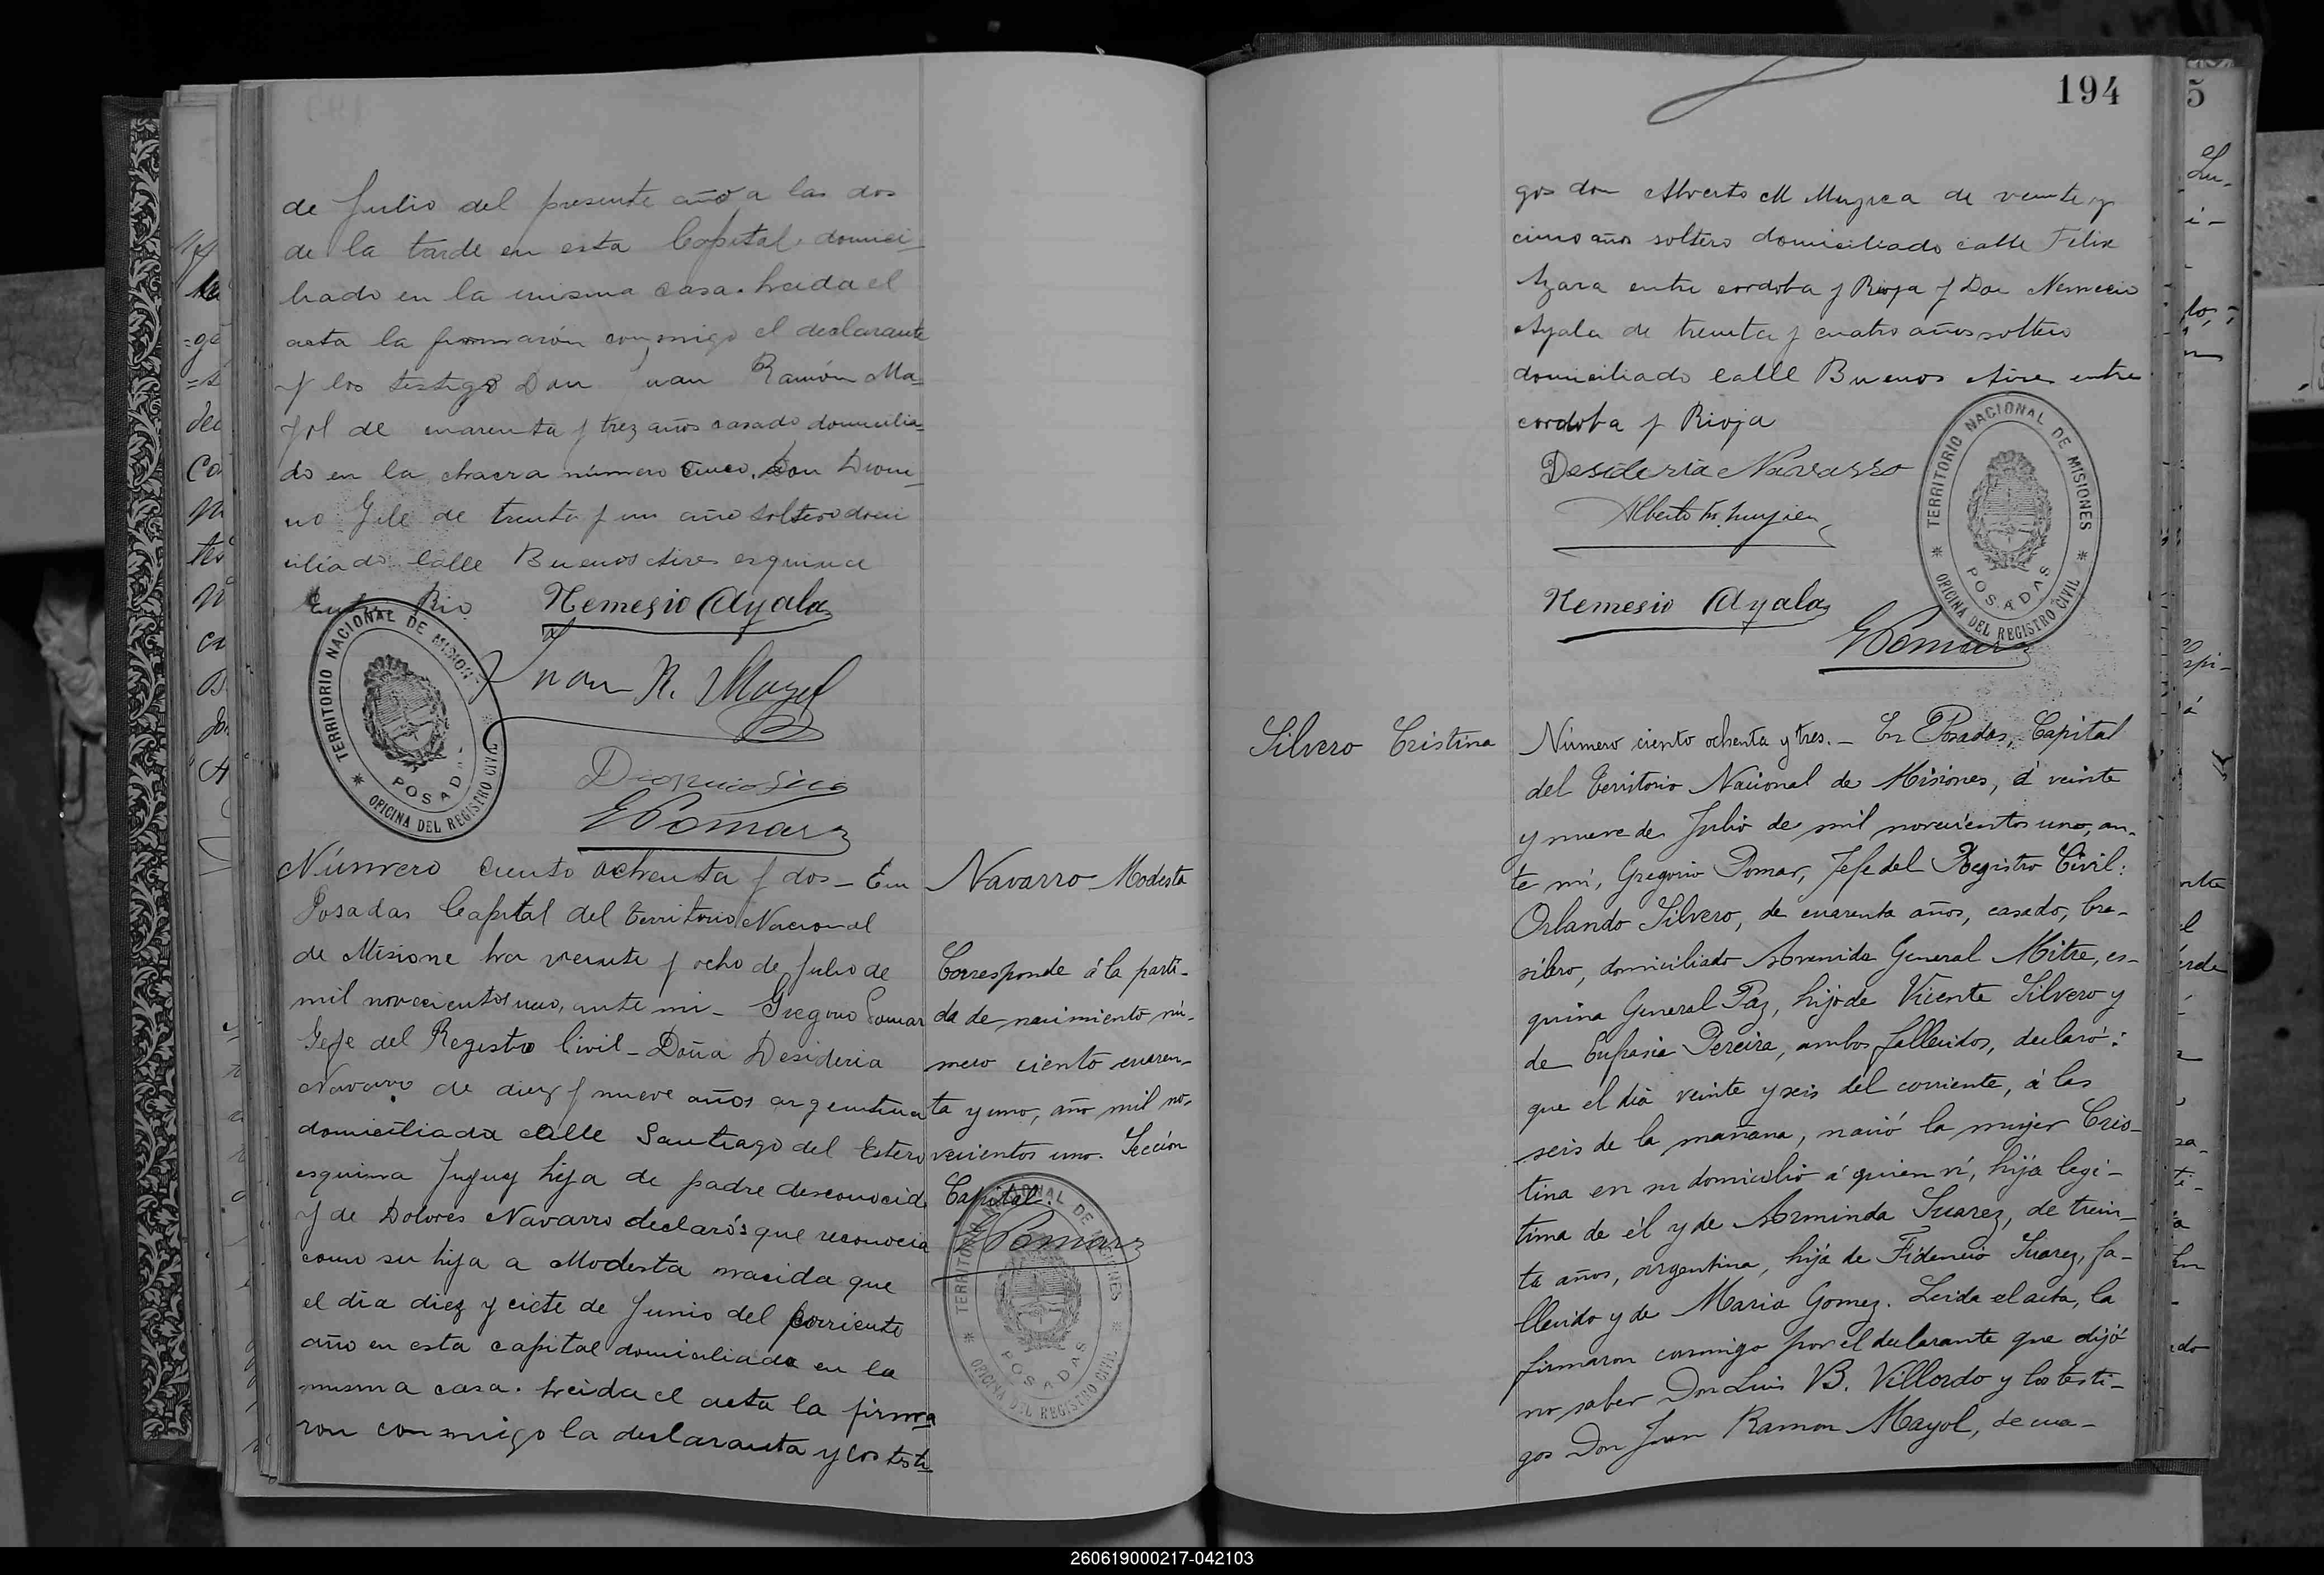 de Julio del presente año a las dos
de la tarde en esta Capital, domici-
liado en la misma casa. Leida el
acta la firmarón conmigo el declarante
y los testigos Don Juan Ramón Ma-
yol de cuarenta y trez años casado domicilia-
do en la chacra número cinco, Don
de treinta y un año soltero domi
ciliado Calle Buenos Aires esquina
Entre Rio
Nemesio Ayala
Juan R. Mayol
GPomar
TERRITORIO NACIONAL DE MISIONES
POSADAS
OFICINA DEL REGISTRO CIVIL
Número ciento ochenta y dos - En
Posadas Capital del Territorio Nacional
de Misione ha veinte y ocho de Julio de
mil novecientos uno, ante mi - Gregorio Pomar
Gefe del Registro Civil - Doña Desideria
Navarro de diez y nueve años argentina
domiciliada calle Santiago del Estero
esquina Jujuy hija de padre desconocido
y de Dolores Navarro declaró que reconocia
como su hija a Modesta nacida que
el dia diez y ciete de Junio del corriente
año en esta capital domiciliada en la
misma casa. Leida el acta la firma
ron conmigo la declaranta y los testi-
Navarro Modesta
Corresponde á la parti-
da de nacimiento nú-
mero ciento cuaren-
ta y uno, año mil no-
vecientos uno. Sección
Capital.
GPomar
TERRITORIO NACIONAL DE MISIONES
POSADAS
OFICINA DEL REGISTRO CIVIL
194
gos don Alverto M Muzica de veinte y
cinco años soltero domiciliado calle Felix
Azara entre cordoba y Rioja y Don Nemecio
Ayala de treinta y cuatro años soltero
domiciliado Calle Buenos Aires entre
cordoba y Rioja
Desideria Navarro
Alberto M.
Nemesio Ayala
GPomar
TERRITORIO NACIONAL DE MISIONES
POSADAS
OFICINA DEL REGISTRO CIVIL
Silvero Cristina
Número ciento ochenta y tres. - En Posadas, Capital
del Territorio Nacional de Misiones, á veinte
y nueve de Julio de mil novecientos uno, an-
te mi, Gregorio Pomar, Jefe del Registro Civil:
Orlando Silvero, de cuarenta años, casado, bra-
silero, domiciliado Avenida General Mitre, es-
quina General Paz, hijo de Vicente Silvero y
de Eufrasia Pereira, ambos fallecidos, declaró:
que el dia veinte y seis del corriente, á las
seis de la mañana, nació la mujer Cris-
tina en su domicilio á quien ví, hija legi-
tima de él y de Arminda Suarez, de trein-
ta años, argentina, hija de Fidencio Suarez, fa-
llecido y de Maria Gomez. Leida el acta, la
firmaron conmigo por el declarante que dijó
no saber Don Luis B. Villordo y los testi-
gos Don Juan Ramon Mayol, de cua-
260619000217-042103